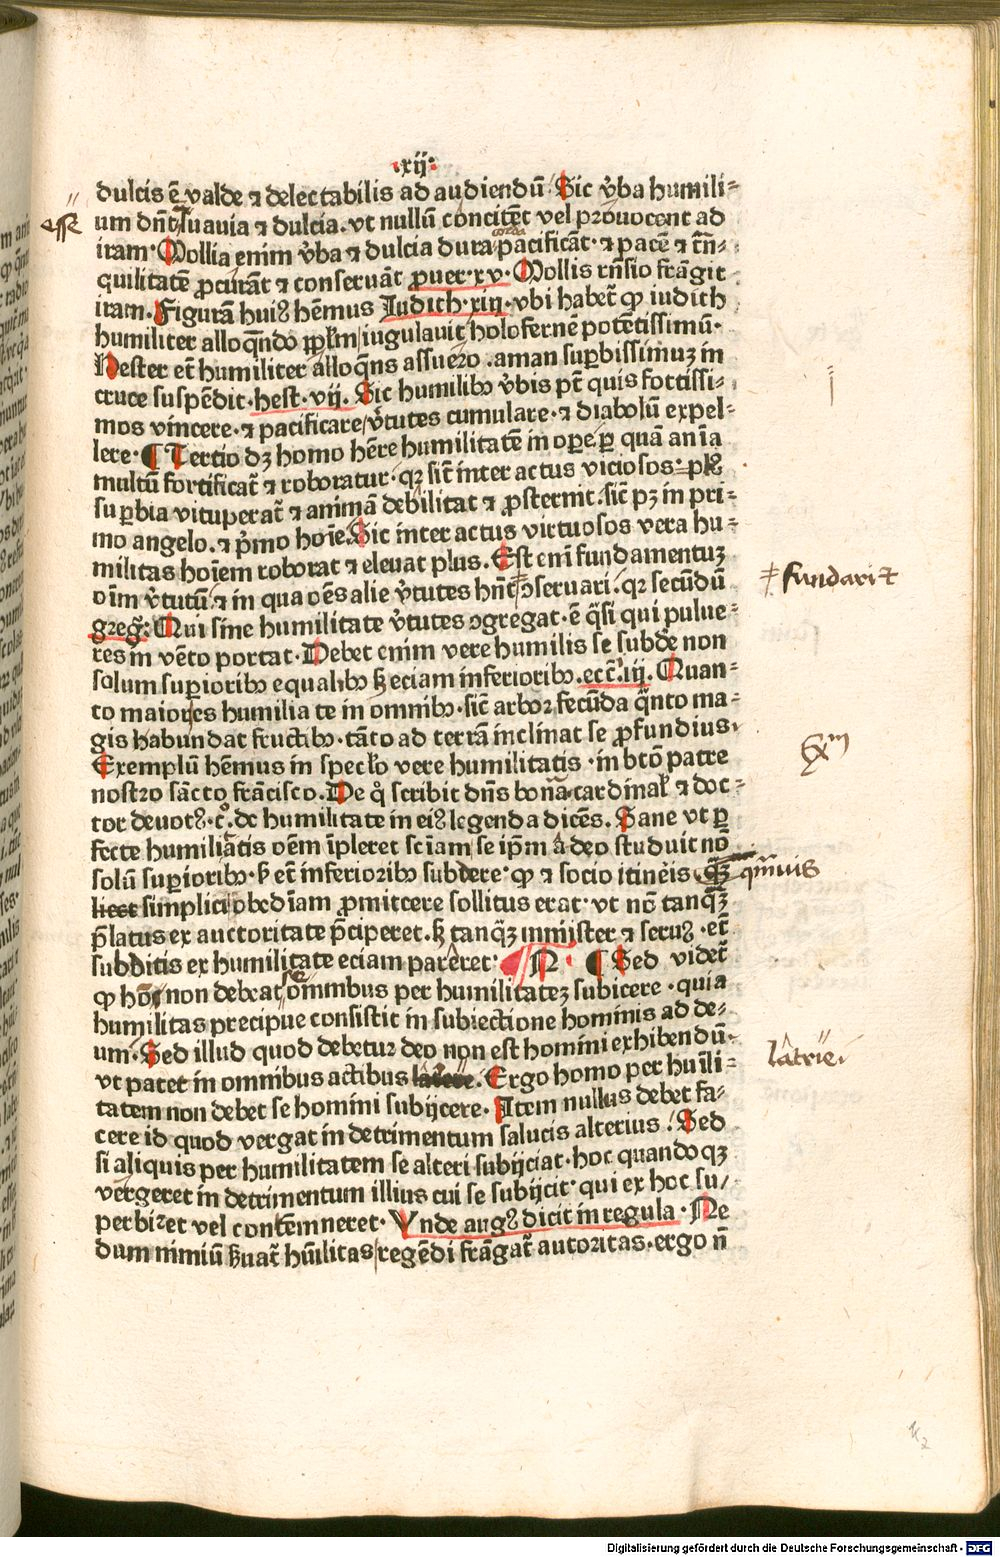 ·xij·
dulcis ē valde ⁊ delectabilis ad audiendū Sic v̄ba humili⸗
esse
um dn̄t suauia ⁊ dulcia. vt nullū concitēt vel prouocent ad
iram· Mollia enim v̄ba ⁊ dulcia dura corda pacificāt· ⁊ pacē ⁊ trā⸗
quilitatē ꝓcurāt ⁊ conseruāt ꝓuer·xv· Mollis rn̄sio frāgit
iram. Figurā huiꝰ hēmus Iudith·xiij· vbi habet̄ ꝙ iudith
humiliter alloquēdo iugulauit holofernē potētissimū·
Hester et̄ humiliter alloquēs assuero .aman suꝑbissimuꝫ in
cruce suspēdit·hest·vij. Sic humilibꝰ v̄bis pt̄ quis fortissi⸗
mos vincere·⁊ pacificare v̄tutes cumulare·⁊ diabolū expel⸗
lere· ¶ Tertio dꝫ homo hēre humilitatē in oꝑe ꝑ quā anīa
multū fortificat̄ ⁊ roboratur· qꝛ sic̄ inter actus viciosos plꝰ
suꝑbia vituperat̄ ⁊ animā debilitat ⁊ ꝓsternit. sic̄ pꝫ in pri⸗
mo angelo. ⁊ p̄mo hoīe. Sic inter actus virtuosos vera hu⸗
militas hoīem roborat ⁊ eleuat plus. Est eni fundamentuꝫ
oīm v̄tutū. ⁊ in qua oēs alie v̄tutes hn̄t ꝯseruari. qꝛ secūdū
‡ fundari ⁊
greg̅. Qui sine humilitate v̄tutes ꝯgregat· ē q̄si qui pulue⸗
res in vēto portat· Debet enim vere humilis se subde non
solum suꝑioribꝰ equalibꝰ sꝫ eciam inferioribꝰ.ecc̄.iij. Quan⸗
to maior es humilia te in omnibꝰ· sic̄ arbor fecūda q̄nto ma⸗
gis habundat fructibꝰ· tāto ad terrā inclinat se ꝓfundius·
Exm
Exemplū hēmus in speclo vere humilitatis· in btō patre
nostro sācto frācisco. De q̊ scribit dn̄s bonā cardinal ⁊ doc⸗
tor deuotꝰ·c̊. de humilitate in eiꝰ legenda dicēs. Sane vt ꝑ
fecte humiliatis oēm īpleret sciam se ipm adeo studuit nō
solū suꝑioribꝰ·sꝫ et̄ inferioribꝰ subdere· ꝙ ⁊ socio itineris qmuis
licet simplici obedīam ꝓmittere sollitus erat· vt nō tanqꝫ
p̄latus ex auctoritate p̄ciperet. sꝫ tanqꝫ minister ⁊ seruꝰ· et̄
subditis ex humilitate eciam pareret· N· ¶ Sed videt̄
ꝙ hō non debeat se omnibus per humilitateꝫ subicere· quia
humilitas precipue consistit in subiectione hominis ad de⸗
um· Sed illud quod debetur deo non est homini exhibendū·
latrie
vt patet in omnibus actibus latrie. Ergo homo per huīli⸗
tatem non debet se homini subijcere· Item nullus debet fa⸗
cere id quod vergat in detrimentum salutis alterius. Sed
si aliquis per humilitatem se alteri subijciat· hoc quandoqꝫ
vergeret in detrimentum illius cui se subijcit· qui ex hoc su⸗
perbiret vel contēmneret· Vnde augꝰ dicit in regula· Ne
dum nimiū huīlitas regēdi frāgat̄ autoritas·ergo n̄
Digitalisierung gefördert durch die Deutsche Forschungsgemeinschaft · DFG